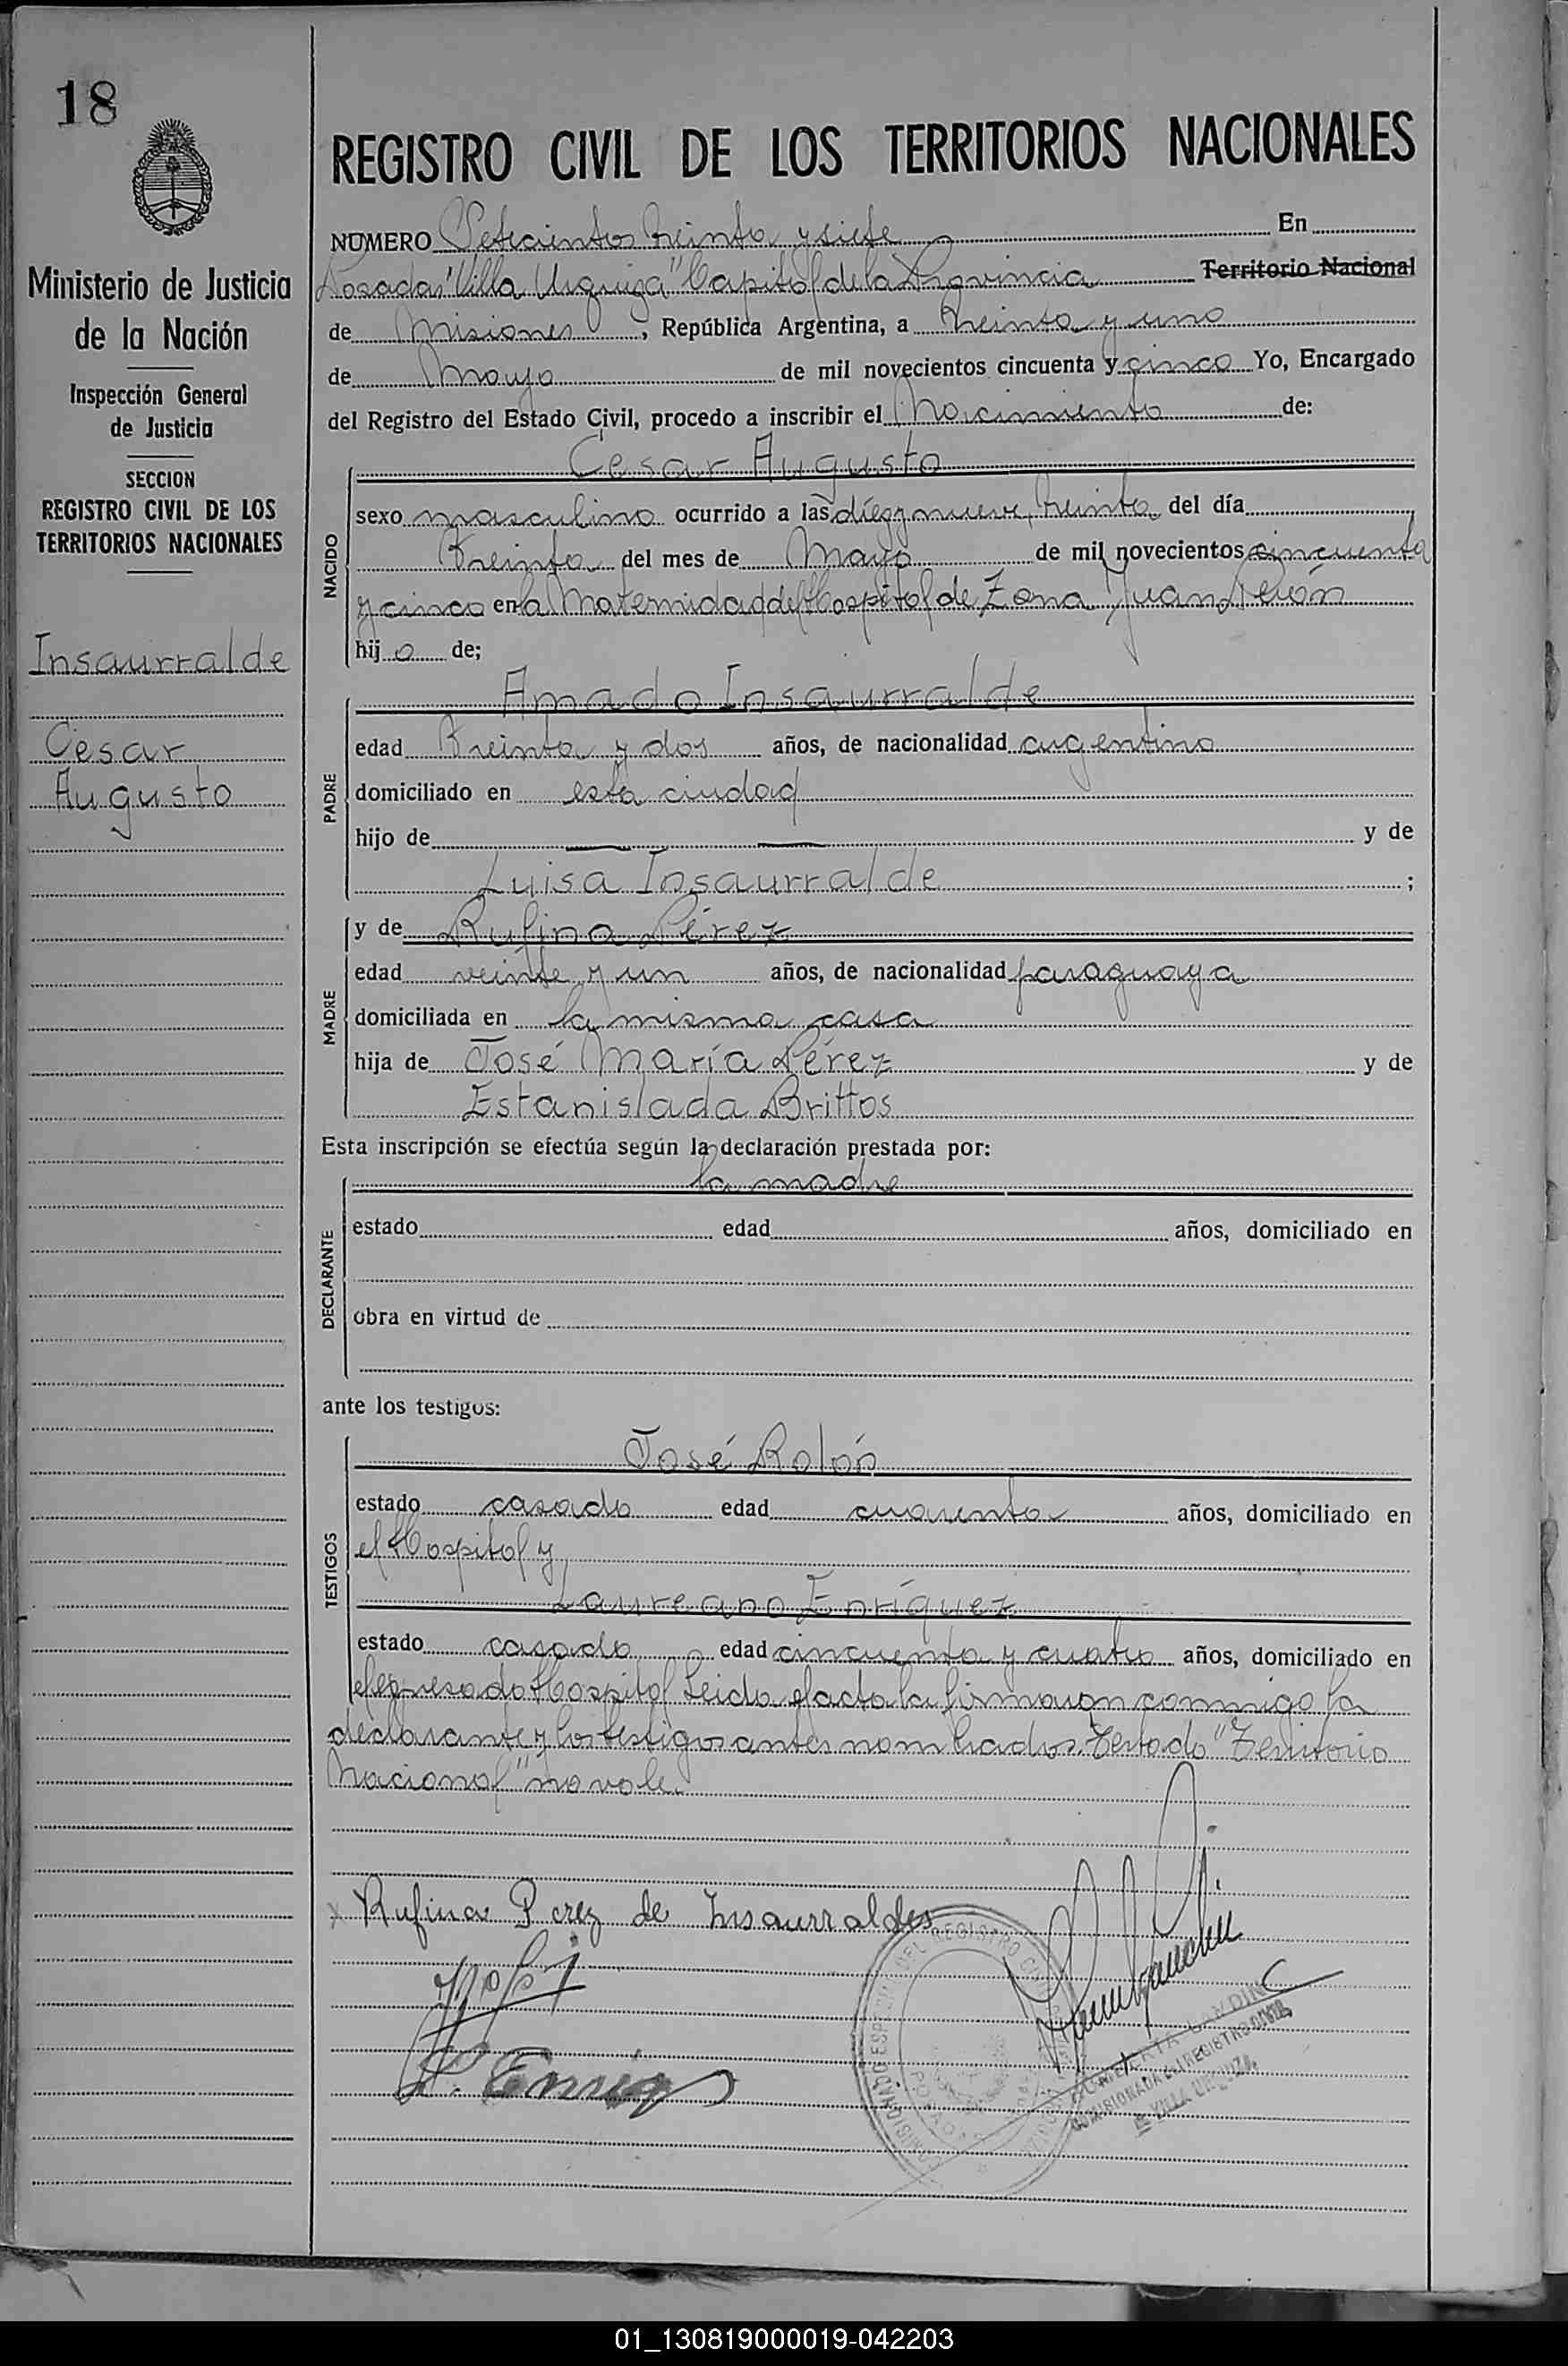 18
Ministerio de Justicia
de la Nación
Inspección General
de Justicia
SECCION
REGISTRO CIVIL DE LOS
TERRITORIOS NACIONALES
Insaurralde
Cesar
Augusto
REGISTRO CIVIL DE LOS TERRITORIOS NACIONALES
NUMERO Setecientos treinta y siete En
Posadas "Villa Urquiza" Capital de la Provincia Territorio Nacional
de Misiones, República Argentina, a treinta y uno
de Mayo de mil novecientos cincuenta y cinco Yo, Encargado
del Registro del Estado Civil, procedo a inscribir el Nacimiento de:
Cesar Augusto
NACIDO
sexo masculino ocurrido a las diez y nueve, treinta del día
treinta del mes de Mayo de mil novecientos cincuenta
y cinco en la Maternidad del Hospital de Zona Juan Perón
hijo de;
Amado Insaurralde
PADRE
edad treinta y dos años, de nacionalidad argentino
domiciliado en esta ciudad
hijo de — — y de
Luisa Insaurralde ;
MADRE
y de Rufina Pérez
edad veinte y un años, de nacionalidad paraguaya
domiciliada en la misma casa
hija de José María Pérez y de
Estanislada Brittos
Esta inscripción se efectúa según la declaración prestada por:
la madre
DECLARANTE
estado edad años, domiciliado en
obra en virtud de
ante los testigos:
José Rolón
TESTIGOS
estado casado edad cuarenta años, domiciliado en
el Hospital y
Laureano Enríquez
estado casado edad cincuenta y cuatro años, domiciliado en
el expresado Hospital Leida el acta la firmaron conmigo la
declarante y los testigos antes nombrados. Testado "Territorio
Nacional" no vale.
Rufina Perez de Insaurraldes
DEL REGISTRO
COMISIONADA DEL REGISTRO CIVIL
VILLA URQUIZA
01_130819000019-042203